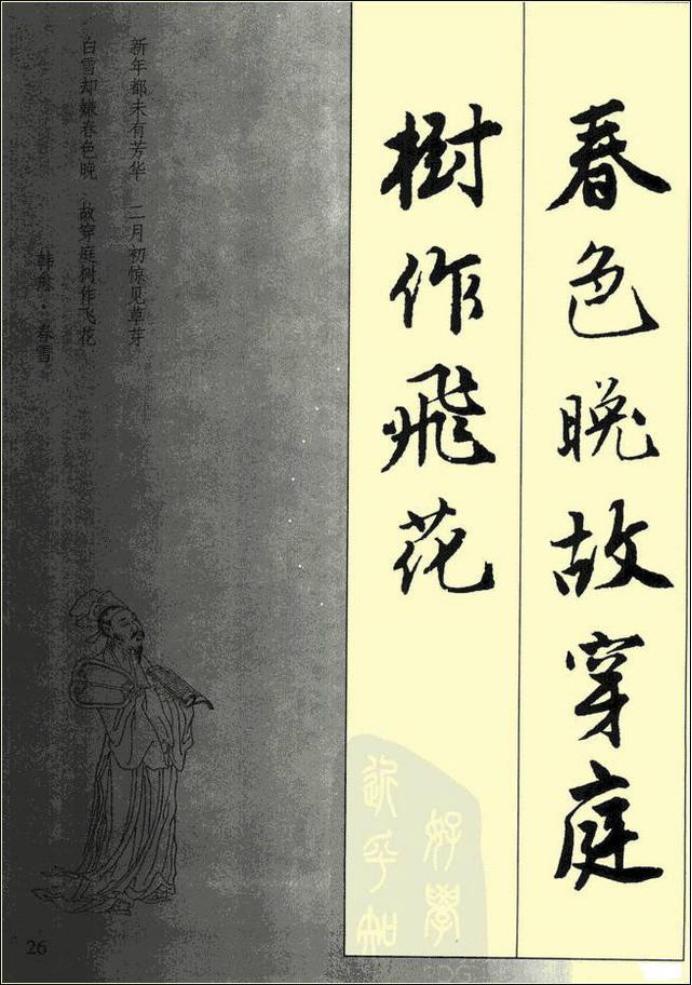 春色晚故穿庭
樹作飛花
新年都未有芳华 二月初惊见草芽
白雪却嫌春色晚 故穿庭树作飞花
韩愈·春雪
好學
近乎知
26